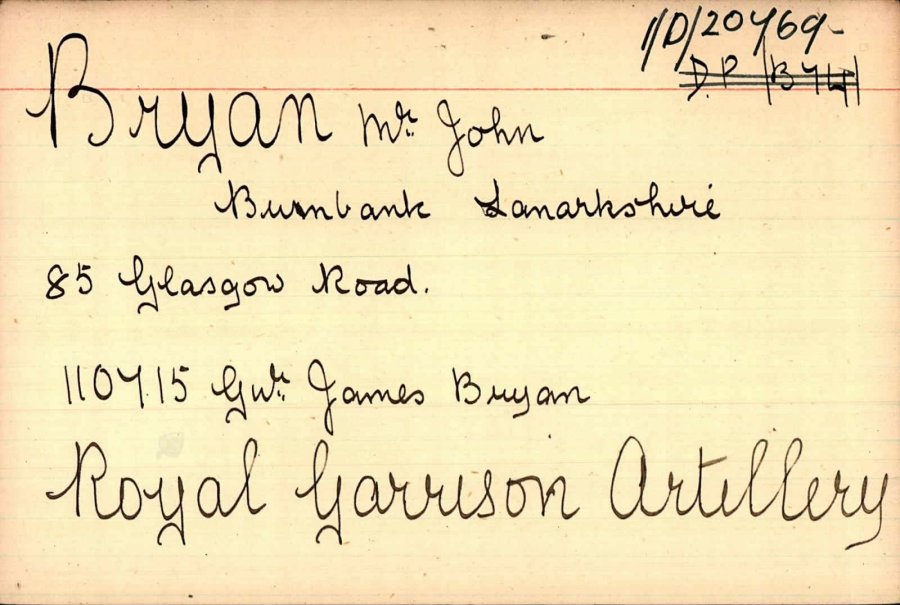 1/D/20769
D.P. /B 74/
Bryan Mr. John
Burnbank Lanarkshire
85 Glasgow Road.
110715 Gnr. James Bryan
Royal Garrison Artillery